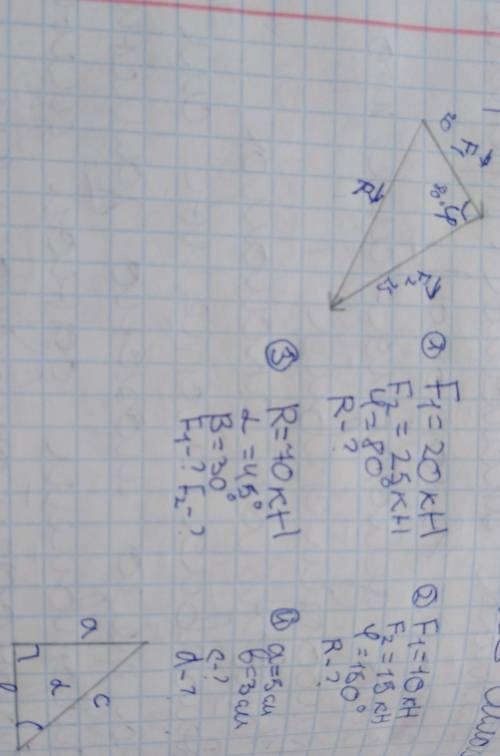 F₁
20
80° φ
R
F₂
25
① F₁=20кН
F₂=25кН
φ=80°
R-?
② F₁=10кН
F₂=15кН
φ=150°
R-?
③ R=40кН
α=45°
β=30°
F₁-? F₂-?
④ a=5см
b=3см
c-?
α-?
a
c
α